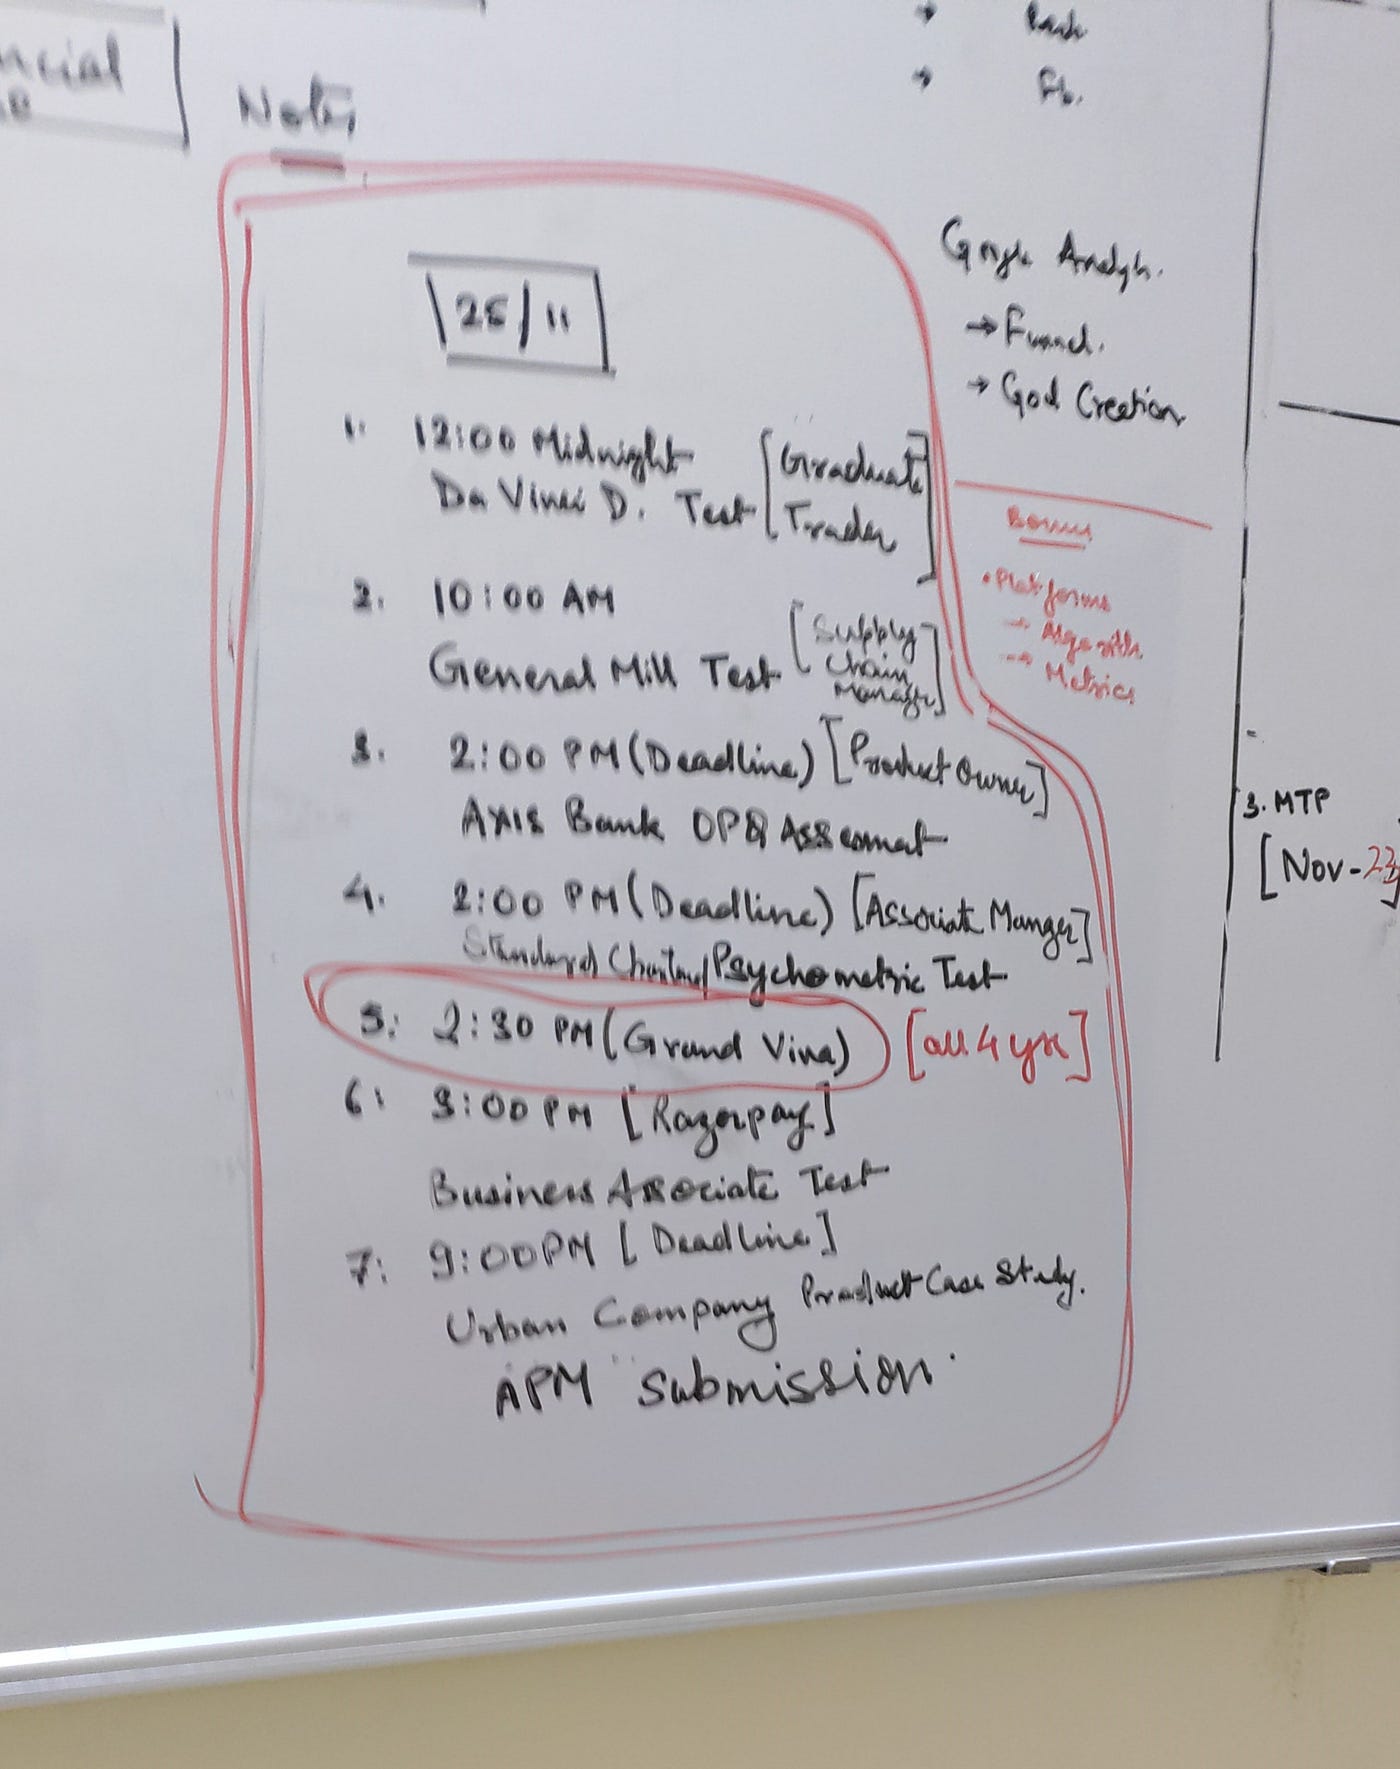 ncial
Notes
25/11
1. 12:00 Midnight [Graduate
Da Vinci D. Test Trader]
2. 10:00 AM
General Mill Test [Supply
Chain
Manager]
3. 2:00 PM (Deadline) [Product Owner]
AXIS Bank OPQ
4. 2:00 PM (Deadline) [Associate Manger]
Standard Psychometric Test
5: 2:30 PM (Grand Viva) [all 4 yrs]
6: 3:00 PM [Razorpay]
Business Associate Test
7: 9:00 PM [Deadline]
Urban Company Product Case Study.
APM Submission.
→
→ Fb.
Google
→ Funnel.
→ Goal Creation
Bonus
• Platforms
→
→ Metrics
3. MTP
[Nov-23]